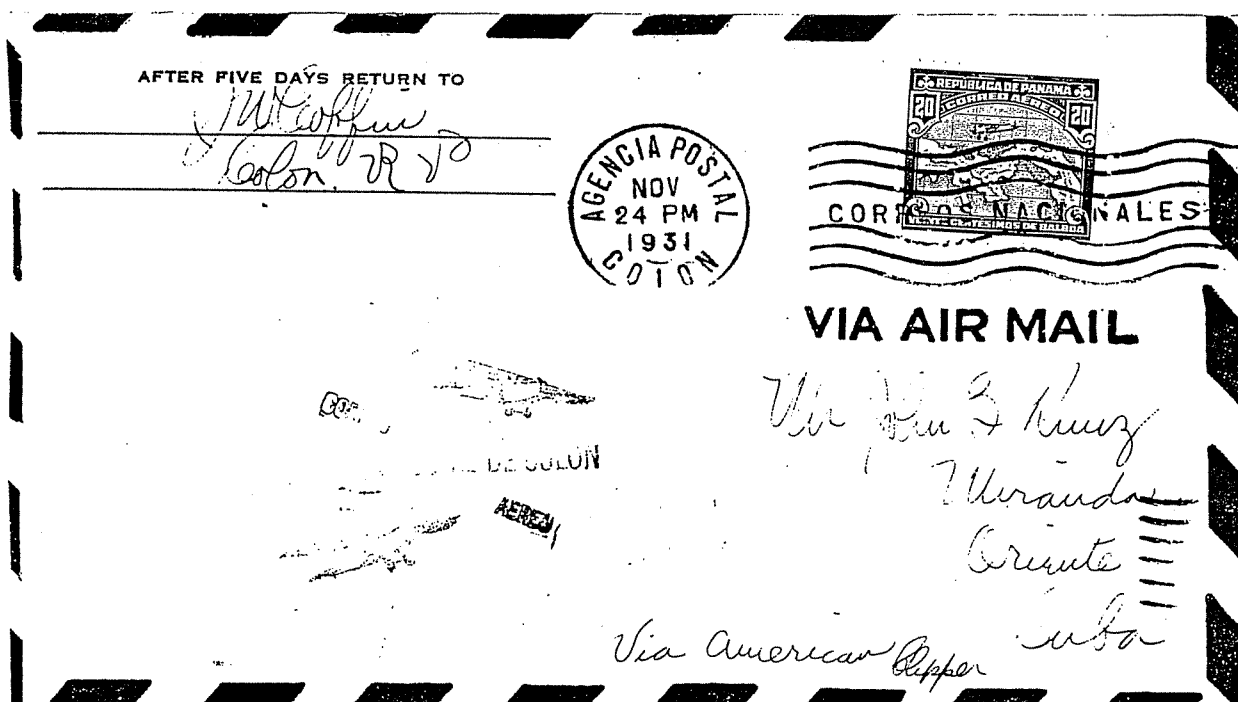 AFTER FIVE DAYS RETURN TO
Coffin
Colon. R P
AGENCIA POSTAL
NOV
24 PM
1931
COLON
REPUBLICA DE PANAMA
CORREO AEREO
20 20
VEINTE CENTESIMOS DE BALBOA
CORREOS NACIONALES
VIA AIR MAIL
Mr John
Miranda
Oriente
Cuba
DE COLON
AEREO
Via American Clipper